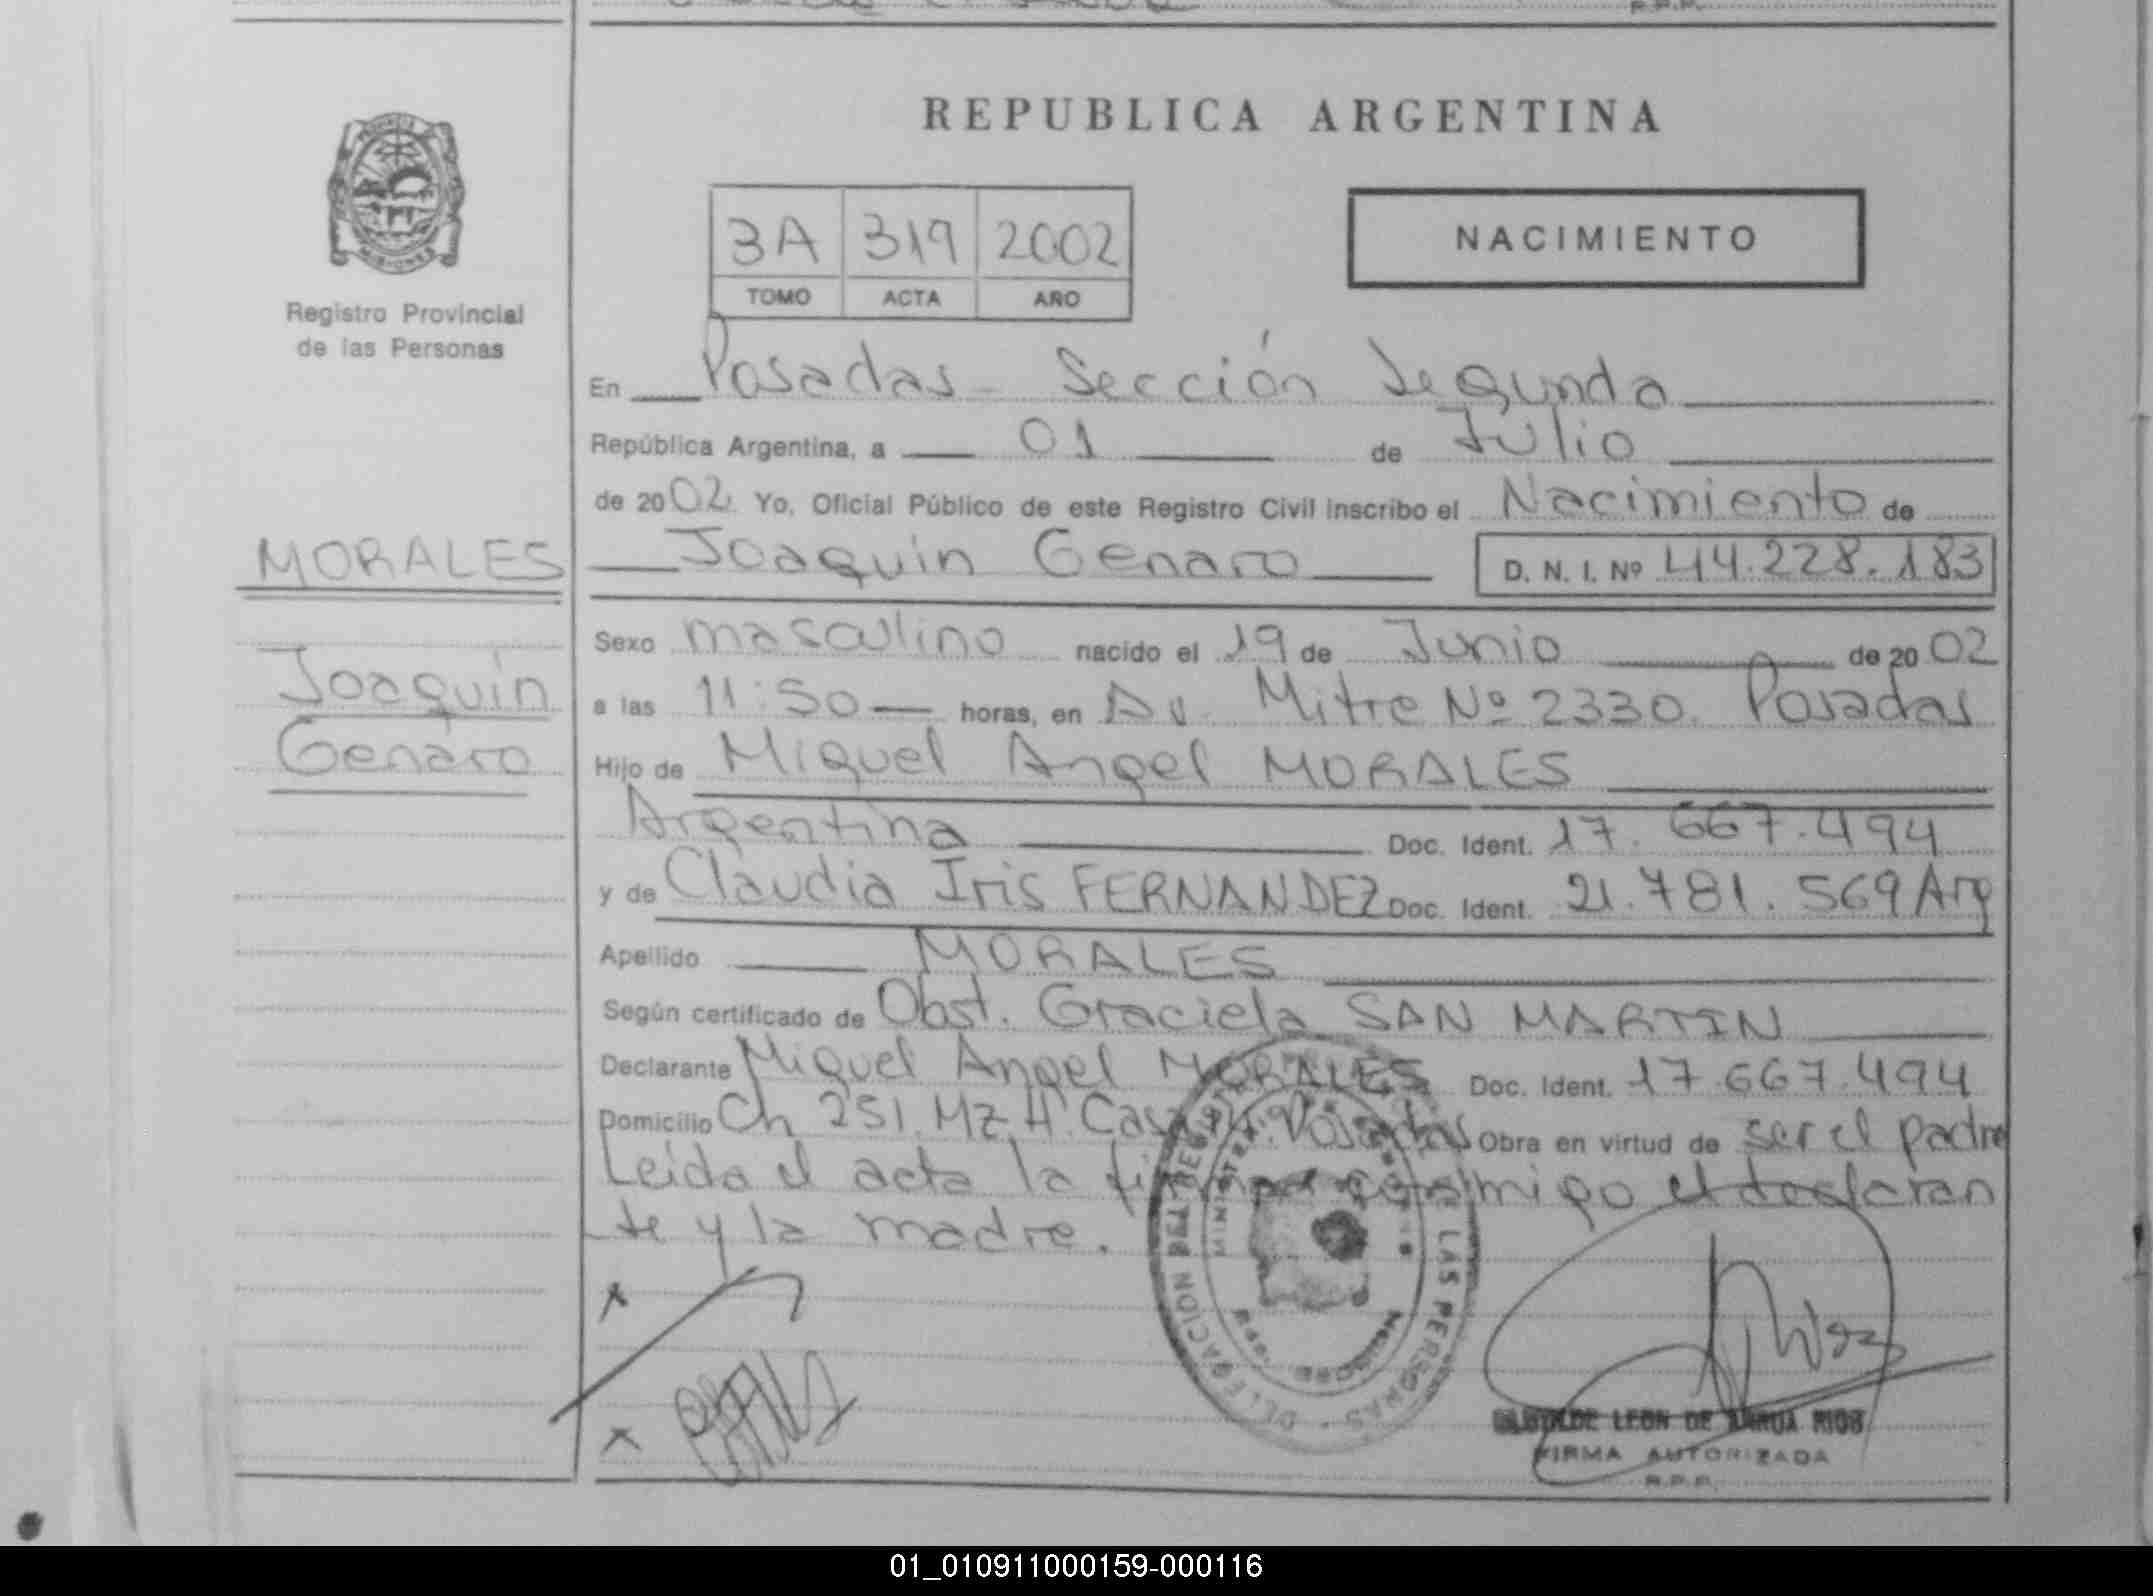 REPUBLICA ARGENTINA
PROVINCIA
MISIONES
Registro Provincial
de las Personas
3A 319 2002
TOMO ACTA AÑO
NACIMIENTO
En Posadas - Sección Segunda
República Argentina, a 01 de Julio
de 2002 Yo, Oficial Público de este Registro Civil inscribo el Nacimiento de
MORALES
Joaquín Genaro D. N. I. Nº 44.228.183
Joaquín
Genaro
Sexo masculino nacido el 19 de Junio de 2002
a las 11:50 horas, en Av. Mitre Nº 2330. Posadas
Hijo de Miguel Angel MORALES
Argentina Doc. Ident. 17.667.494
y de Claudia Iris FERNANDEZ Doc. Ident. 21.781.569 Arg
Apellido MORALES
Según certificado de Obst. Graciela SAN MARTIN
Declarante Miguel Angel MORALES Doc. Ident. 17.667.494
Domicilio Ch 251. Mz H. Posadas Obra en virtud de ser el padre
Leída el acta la firman conmigo el declaran
te y la madre.
DELEGACION DEL REGISTRO DE LAS PERSONAS
MISIONES
x
x
LEON DE RIOS
FIRMA AUTORIZADA
R.P.P.
01_010911000159-000116